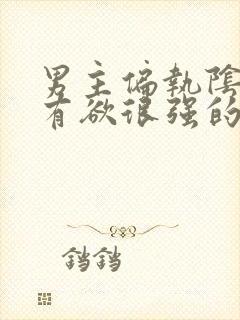 男主偏執陰
有欲很强的
铛铛